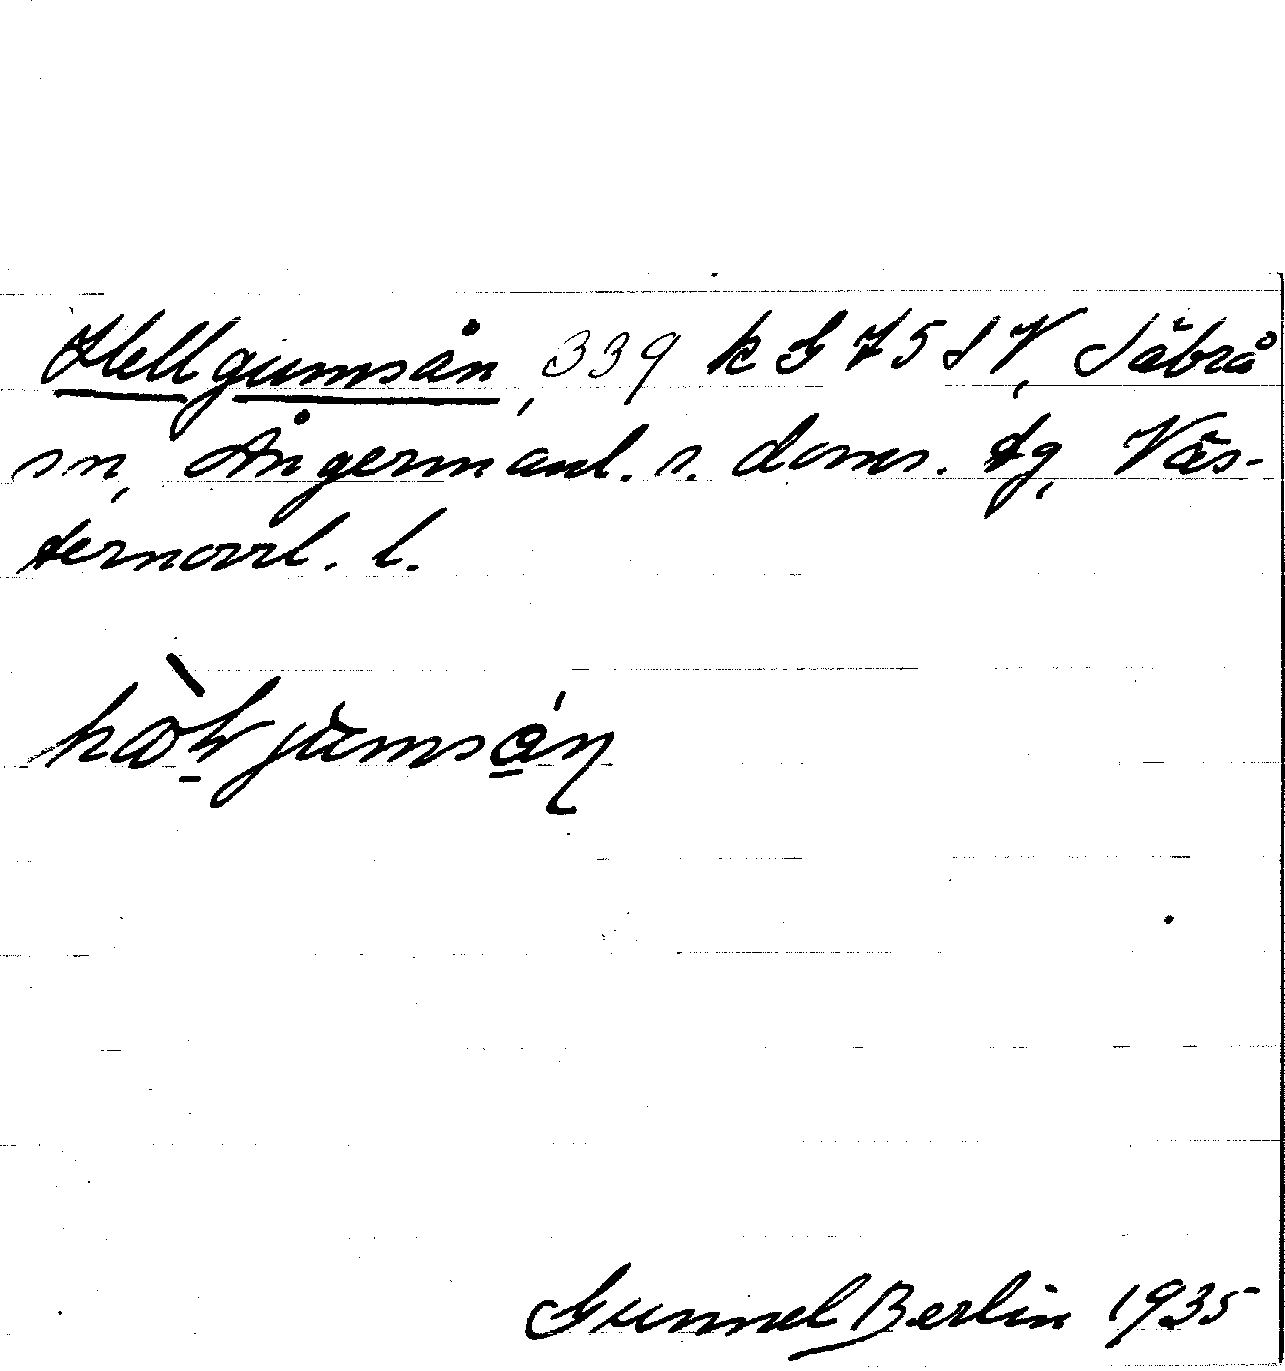 Hellgumsån, 339 k G 75 S V, Säbrå
sn, Ångermanl. s. doms. tg, Väs-
ternorrl. l.
Gunnel Berlin 1935